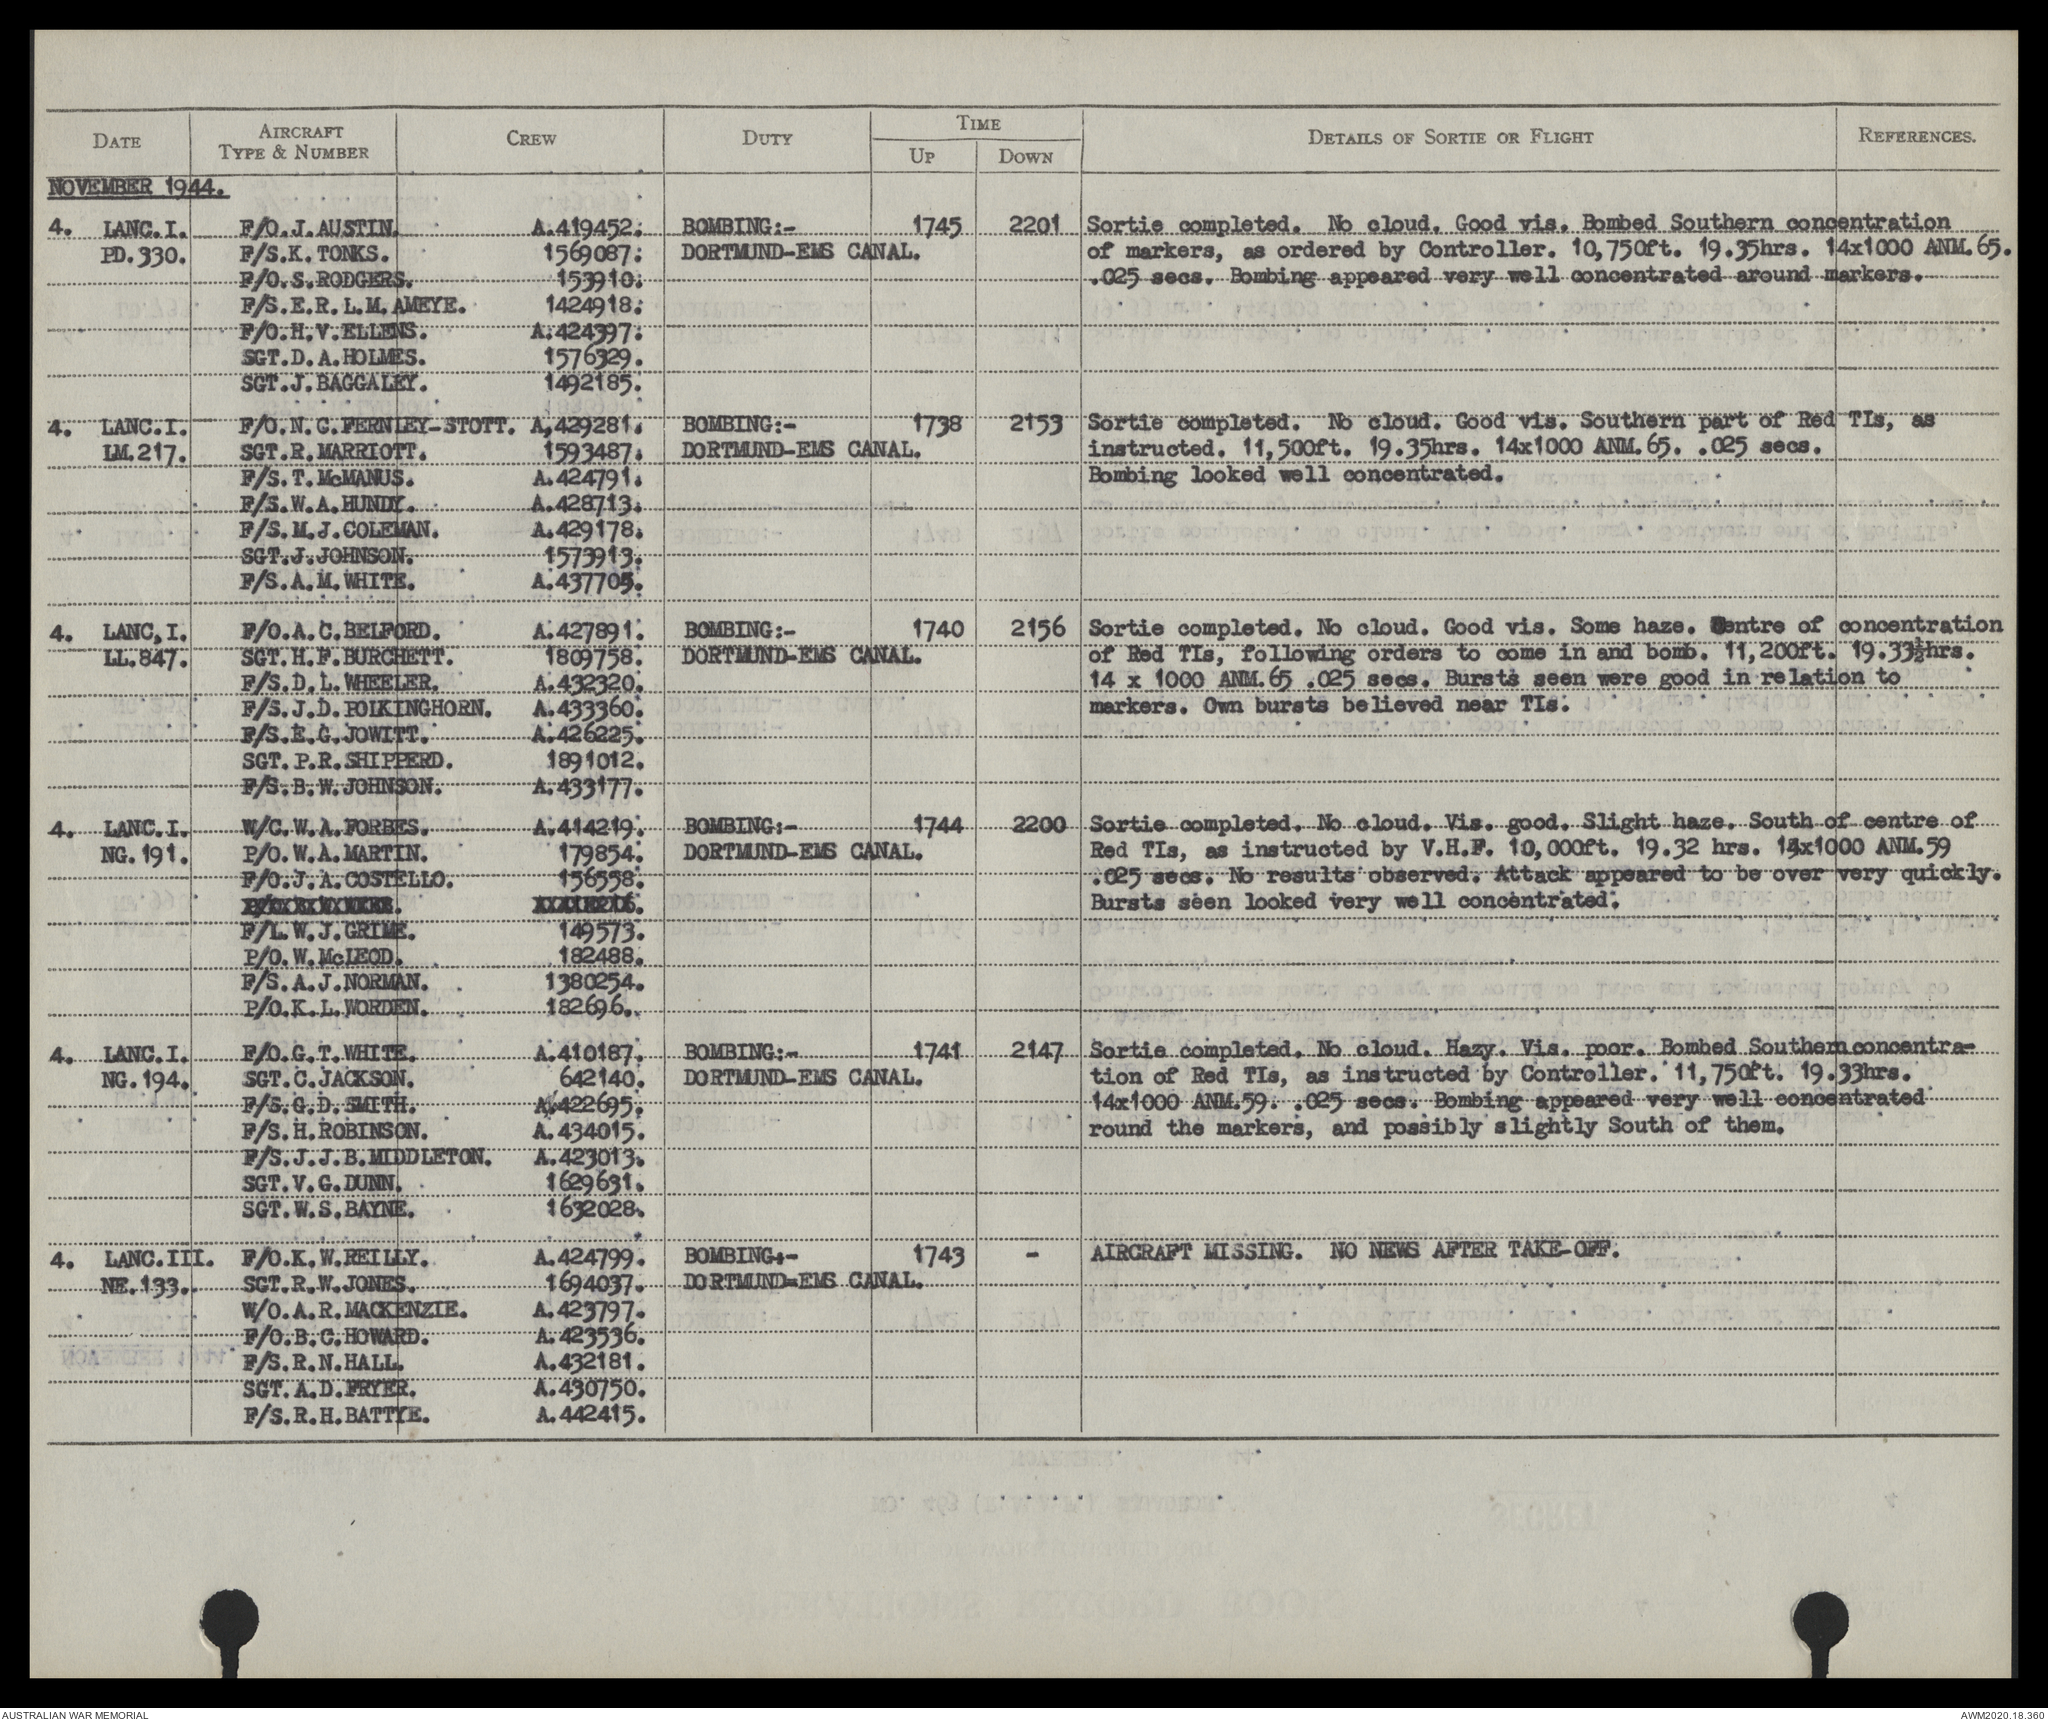 DATE AIRCRAFT TYPE & NUMBER CREW DUTY TIME UP DOWN DETAILS OF SORTIE OR FLIGHT REFERENCES.
NOVEMBER 1944.
4. LANC.I. F/O.J.AUSTIN. A.419452. BOMBING:- 1745 2201 Sortie completed. No cloud. Good vis. Bombed Southern concentration
PD.330. F/S.K.TONKS. 1569087. DORTMUND-EMS CANAL. of markers, as ordered by Controller. 10,750ft. 19.35hrs. 14x1000 ANM.65.
F/O.S.RODGERS. 153910. .025 secs. Bombing appeared very well concentrated around markers.
F/S.E.R.L.M.AMEYE. 1424918.
F/O.H.V.ELLENS. A.424397.
SGT.D.A.HOLMES. 1576329.
SGT.J.BAGGALEY. 1492185.
4. LANC.I. F/O.N.C.FERNLEY-STOTT. A,429281. BOMBING:- 1738 2153 Sortie completed. No cloud. Good vis. Southern part of Red TIs, as
LM.217. SGT.R.MARRIOTT. 1593487. DORTMUND-EMS CANAL. instructed. 11,500ft. 19.35hrs. 14x1000 ANM.65. .025 secs.
F/S.T.McMANUS. A.424791. Bombing looked well concentrated.
F/S.W.A.HUNDY. A.428713.
F/S.M.J.COLEMAN. A.429178.
SGT.J.JOHNSON. 1573913.
F/S.A.M.WHITE. A.437705.
4. LANC,I. F/O.A.C.BELFORD. A.427891. BOMBING:- 1740 2156 Sortie completed. No cloud. Good vis. Some haze. Centre of concentration
LL.847. SGT.H.F.BURCHETT. 1809758. DORTMUND-EMS CANAL. of Red TIs, following orders to come in and bomb. 11,200ft. 19.33½hrs.
F/S.D.L.WHEELER. A.432320. 14 x 1000 ANM.65 .025 secs. Bursts seen were good in relation to
F/S.J.D.POLKINGHORN. A.433360. markers. Own bursts believed near TIs.
F/S.E.G.JOWITT. A.426225.
SGT.P.R.SHIPPERD. 1891012.
F/S.B.W.JOHNSON. A.433177.
4. LANC.I. W/C.W.A.FORBES. A.414219. BOMBING:- 1744 2200 Sortie completed. No cloud. Vis. good. Slight haze. South of centre of
NG.191. P/O.W.A.MARTIN. 179854. DORTMUND-EMS CANAL. Red TIs, as instructed by V.H.F. 10,000ft. 19.32 hrs. 14x1000 ANM.59
F/O.J.A.COSTELLO. 156558. .025 secs. No results observed. Attack appeared to be over very quickly.
Bursts seen looked very well concentrated.
F/L.W.J.GRIME. 149573.
P/O.W.McLEOD. 182488.
F/S.A.J.NORMAN. 1380254.
P/O.K.L.WORDEN. 182696.
4. LANC.I. F/O.G.T.WHITE. A.410187. BOMBING:- 1741 2147 Sortie completed. No cloud. Hazy. Vis. poor. Bombed Southern concentra-
NG.194. SGT.C.JACKSON. 642140. DORTMUND-EMS CANAL. tion of Red TIs, as instructed by Controller. 11,750ft. 19.33hrs.
F/S.G.D.SMITH. A.422695. 14x1000 ANM.59. .025 secs. Bombing appeared very well concentrated
F/S.H.ROBINSON. A.434015. round the markers, and possibly slightly South of them.
F/S.J.J.B.MIDDLETON. A.423013.
SGT.V.G.DUNN. 1629631.
SGT.W.S.BAYNE. 1632028.
4. LANC.III. F/O.K.W.REILLY. A.424799. BOMBING:- 1743 - AIRCRAFT MISSING. NO NEWS AFTER TAKE-OFF.
NE.133. SGT.R.W.JONES. 1694037. DORTMUND-EMS CANAL.
W/O.A.R.MACKENZIE. A.423797.
F/O.B.C.HOWARD. A.423536.
F/S.R.N.HALL. A.432181.
SGT.A.D.FRYER. A.430750.
F/S.R.H.BATTYE. A.442415.
AUSTRALIAN WAR MEMORIAL AWM2020.18.360